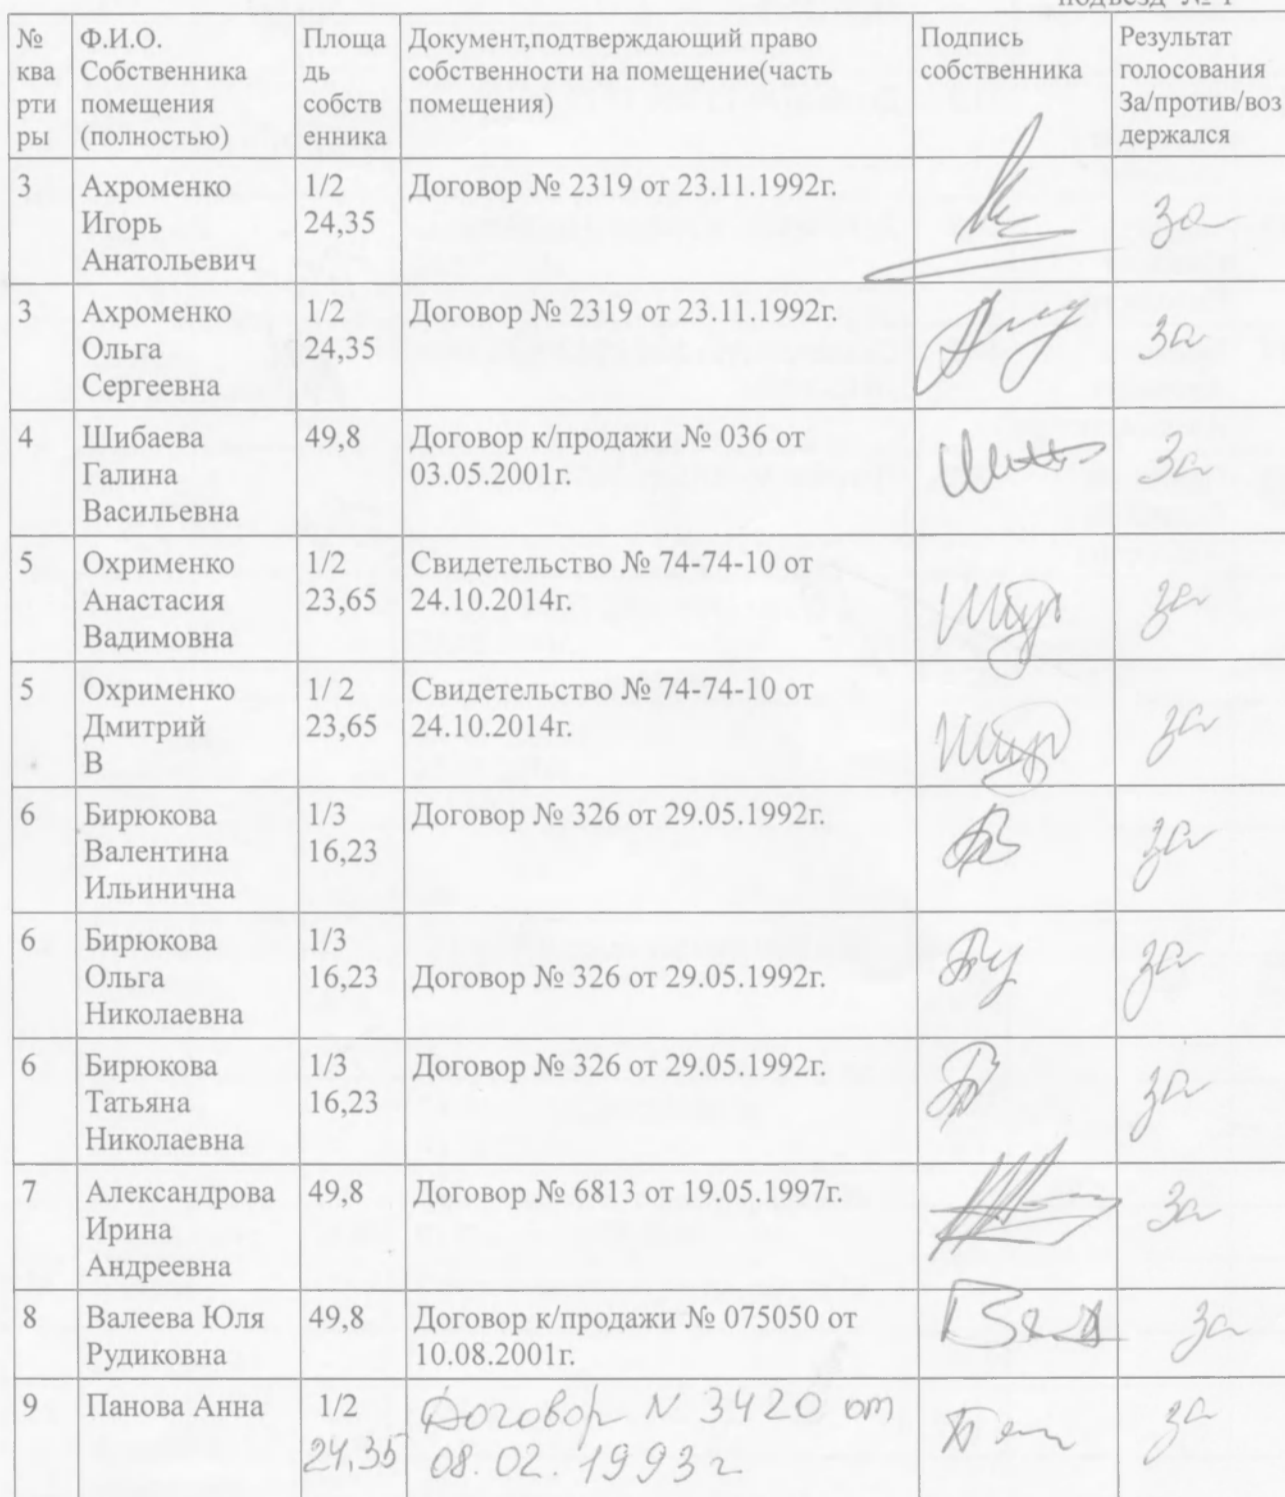 № ква рти ры | Ф.И.О. Собственника помещения (полностью) | Площа дь собств енника | Документ,подтверждающий право собственности на помещение(часть помещения) | Подпись собственника | Результат голосования За/против/воз держался
3 | Ахроменко Игорь Анатольевич | 1/2 24,35 | Договор № 2319 от 23.11.1992г. | за
3 | Ахроменко Ольга Сергеевна | 1/2 24,35 | Договор № 2319 от 23.11.1992г. | за
4 | Шибаева Галина Васильевна | 49,8 | Договор к/продажи № 036 от 03.05.2001г. | За
5 | Охрименко Анастасия Вадимовна | 1/2 23,65 | Свидетельство № 74-74-10 от 24.10.2014г. | за
5 | Охрименко Дмитрий В | 1/ 2 23,65 | Свидетельство № 74-74-10 от 24.10.2014г. | за
6 | Бирюкова Валентина Ильинична | 1/3 16,23 | Договор № 326 от 29.05.1992г. | за
6 | Бирюкова Ольга Николаевна | 1/3 16,23 | Договор № 326 от 29.05.1992г. | за
6 | Бирюкова Татьяна Николаевна | 1/3 16,23 | Договор № 326 от 29.05.1992г. | за
7 | Александрова Ирина Андреевна | 49,8 | Договор № 6813 от 19.05.1997г. | За
8 | Валеева Юля Рудиковна | 49,8 | Договор к/продажи № 075050 от 10.08.2001г. | за
9 | Панова Анна | 1/2 24,35 | Договор N 3420 от 08.02.1993г | за